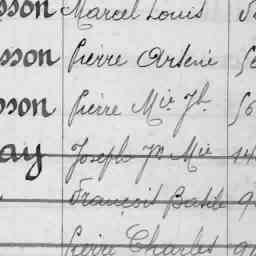 sson Marcel Louis
sson Pierre Arsène 56
sson Pierre Mie Jh 56
ay Joseph Jn Mie 14
François Basile 9
Pierre Charles 9